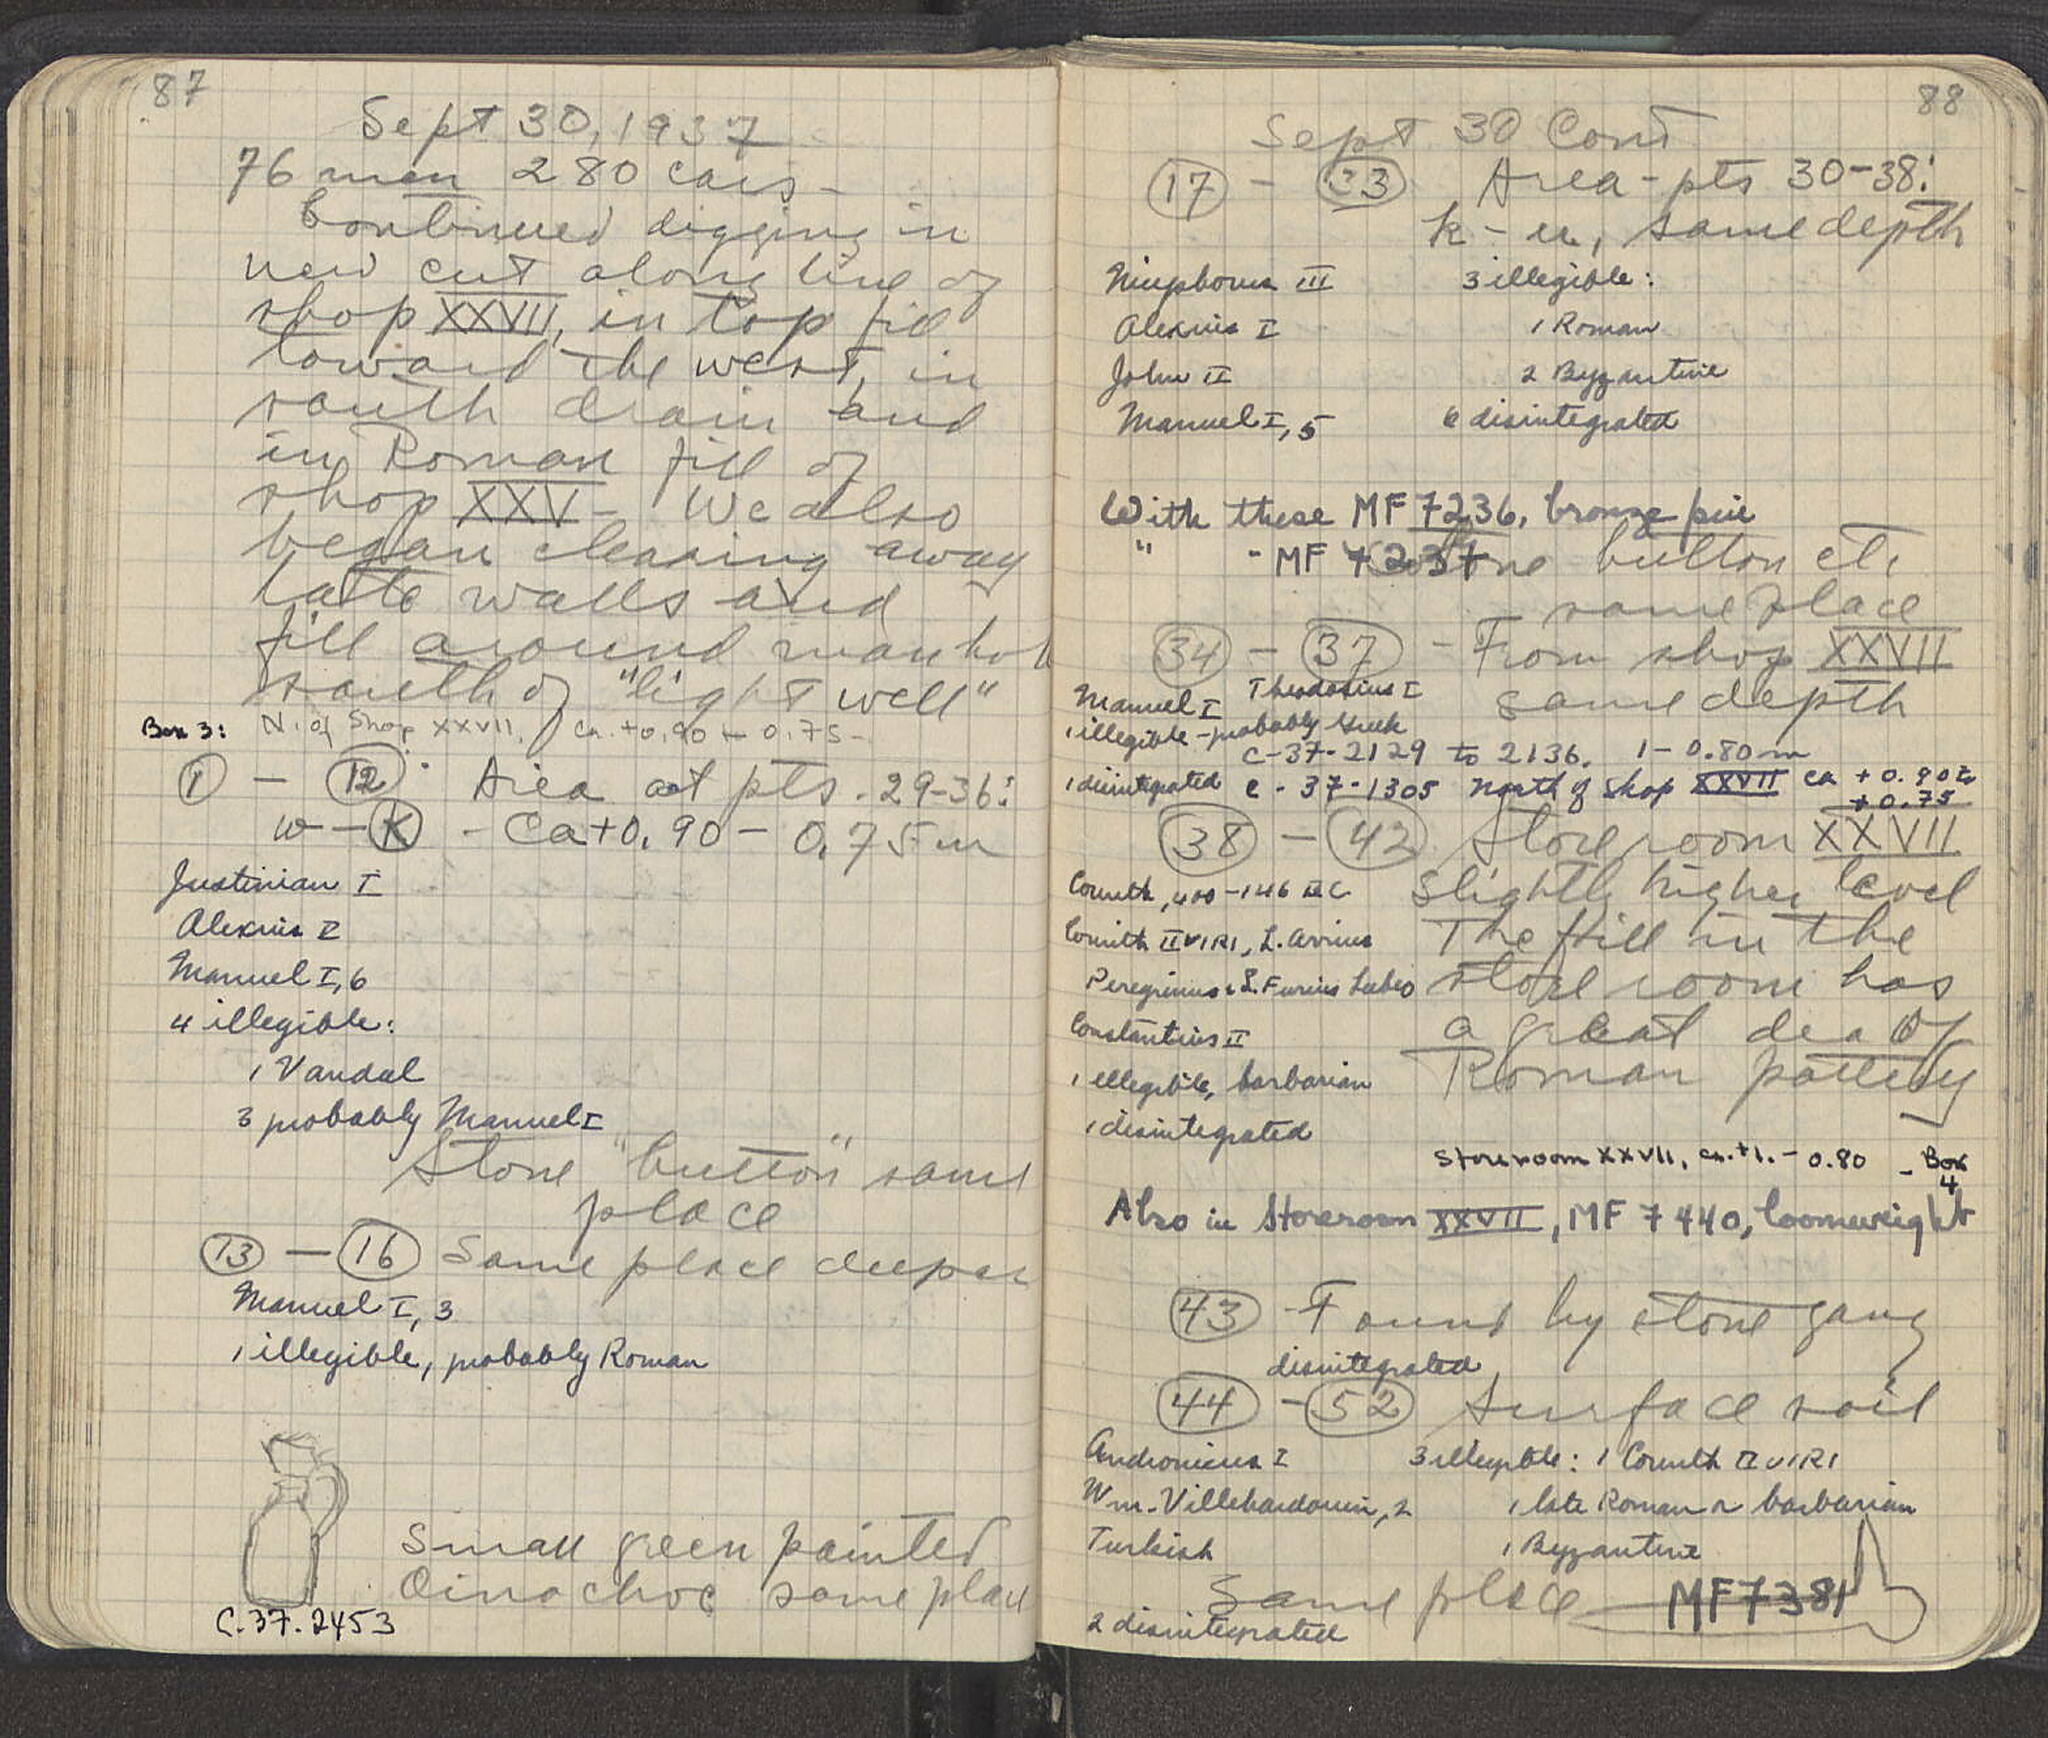 87
Sept 30, 1937
76 men 280 cars -
Continued digging in
new cut along line of
shop XXVII, in top fill
toward the west, in
south drain and
in Roman fill of
shop XXV - We also
began clearing away
late walls and
fill around manhole
south of "light well"
Box 3: N. of Shop XXVII, ca. +0.90 - 0.75 -
1 - 12: Area at pts. 29-36:
w - K - Ca +0.90 - 0.75 m
Justinian I
Alexius I
Manuel I, 6
4 illegible:
1 Vandal
3 probably Manuel I
Stone "button" same
place
13 - 16 Same place deeper
Manuel I, 3
1 illegible, probably Roman
Small green painted
Oinochoe same place
C.37.2453
88
Sept 30 Cont
17 - 33 Area - pts 30-38:
k - u, same depth
Nicephorus III 3 illegible:
Alexius I 1 Roman
John II 2 Byzantine
Manuel I, 5 6 disintegrated
With these MF 7236, bronze pin
" - MF 7237 button etc
same place
34 - 37 - From shop XXVII
Manuel I Theodosius I same depth
1 illegible - probably Greek
C-37-2129 to 2136. 1 - 0.80 m
1 disintegrated C-37-1305 North of Shop XXVII ca +0.90 to
+0.75
38 - 42 Storeroom XXVII
Corinth, 400-146 BC slightly higher level
Corinth IIVIRI, L. Arrius The fill in the
Peregrinus & L. Furius Labeo store room has
Constantius II a great deal of
1 illegible, barbarian Roman pottery
1 disintegrated
Storeroom XXVII, ca. +1. - 0.80 - Box
4
Also in Storeroom XXVII, MF 7440, loomweight
43 Found by stone gang
disintegrated
44 - 52 Surface soil
Andronicus I 3 illegible: 1 Corinth IIVIRI
Wm. Villehardouin, 2 1 late Roman or barbarian
Turkish 1 Byzantine
Same place MF 7381
2 disintegrated